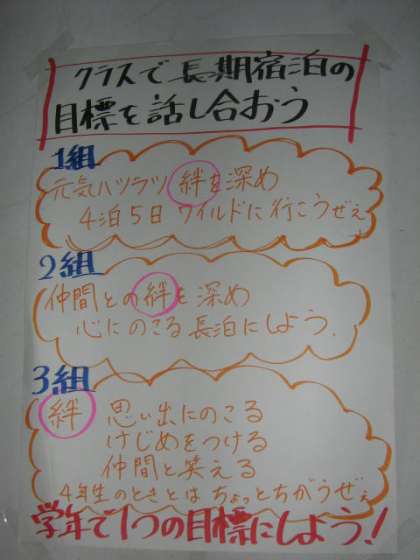 クラスで長期宿泊の
目標を話し合おう
1組
元気ハツラツ 絆を深め
4泊5日 ワイルドに行こうぜぇ
2組
仲間との絆を深め
心にのこる長泊にしよう。
3組
絆 思い出にのこる
けじめをつける
仲間と笑える
4年生のときとはちょっとちがうぜぇ
学年で1つの目標にしよう!